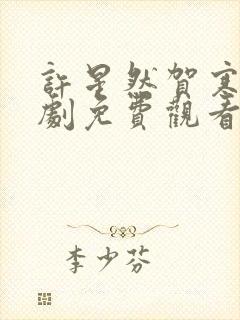 許星然賀寒
劇免費觀看
李少芬